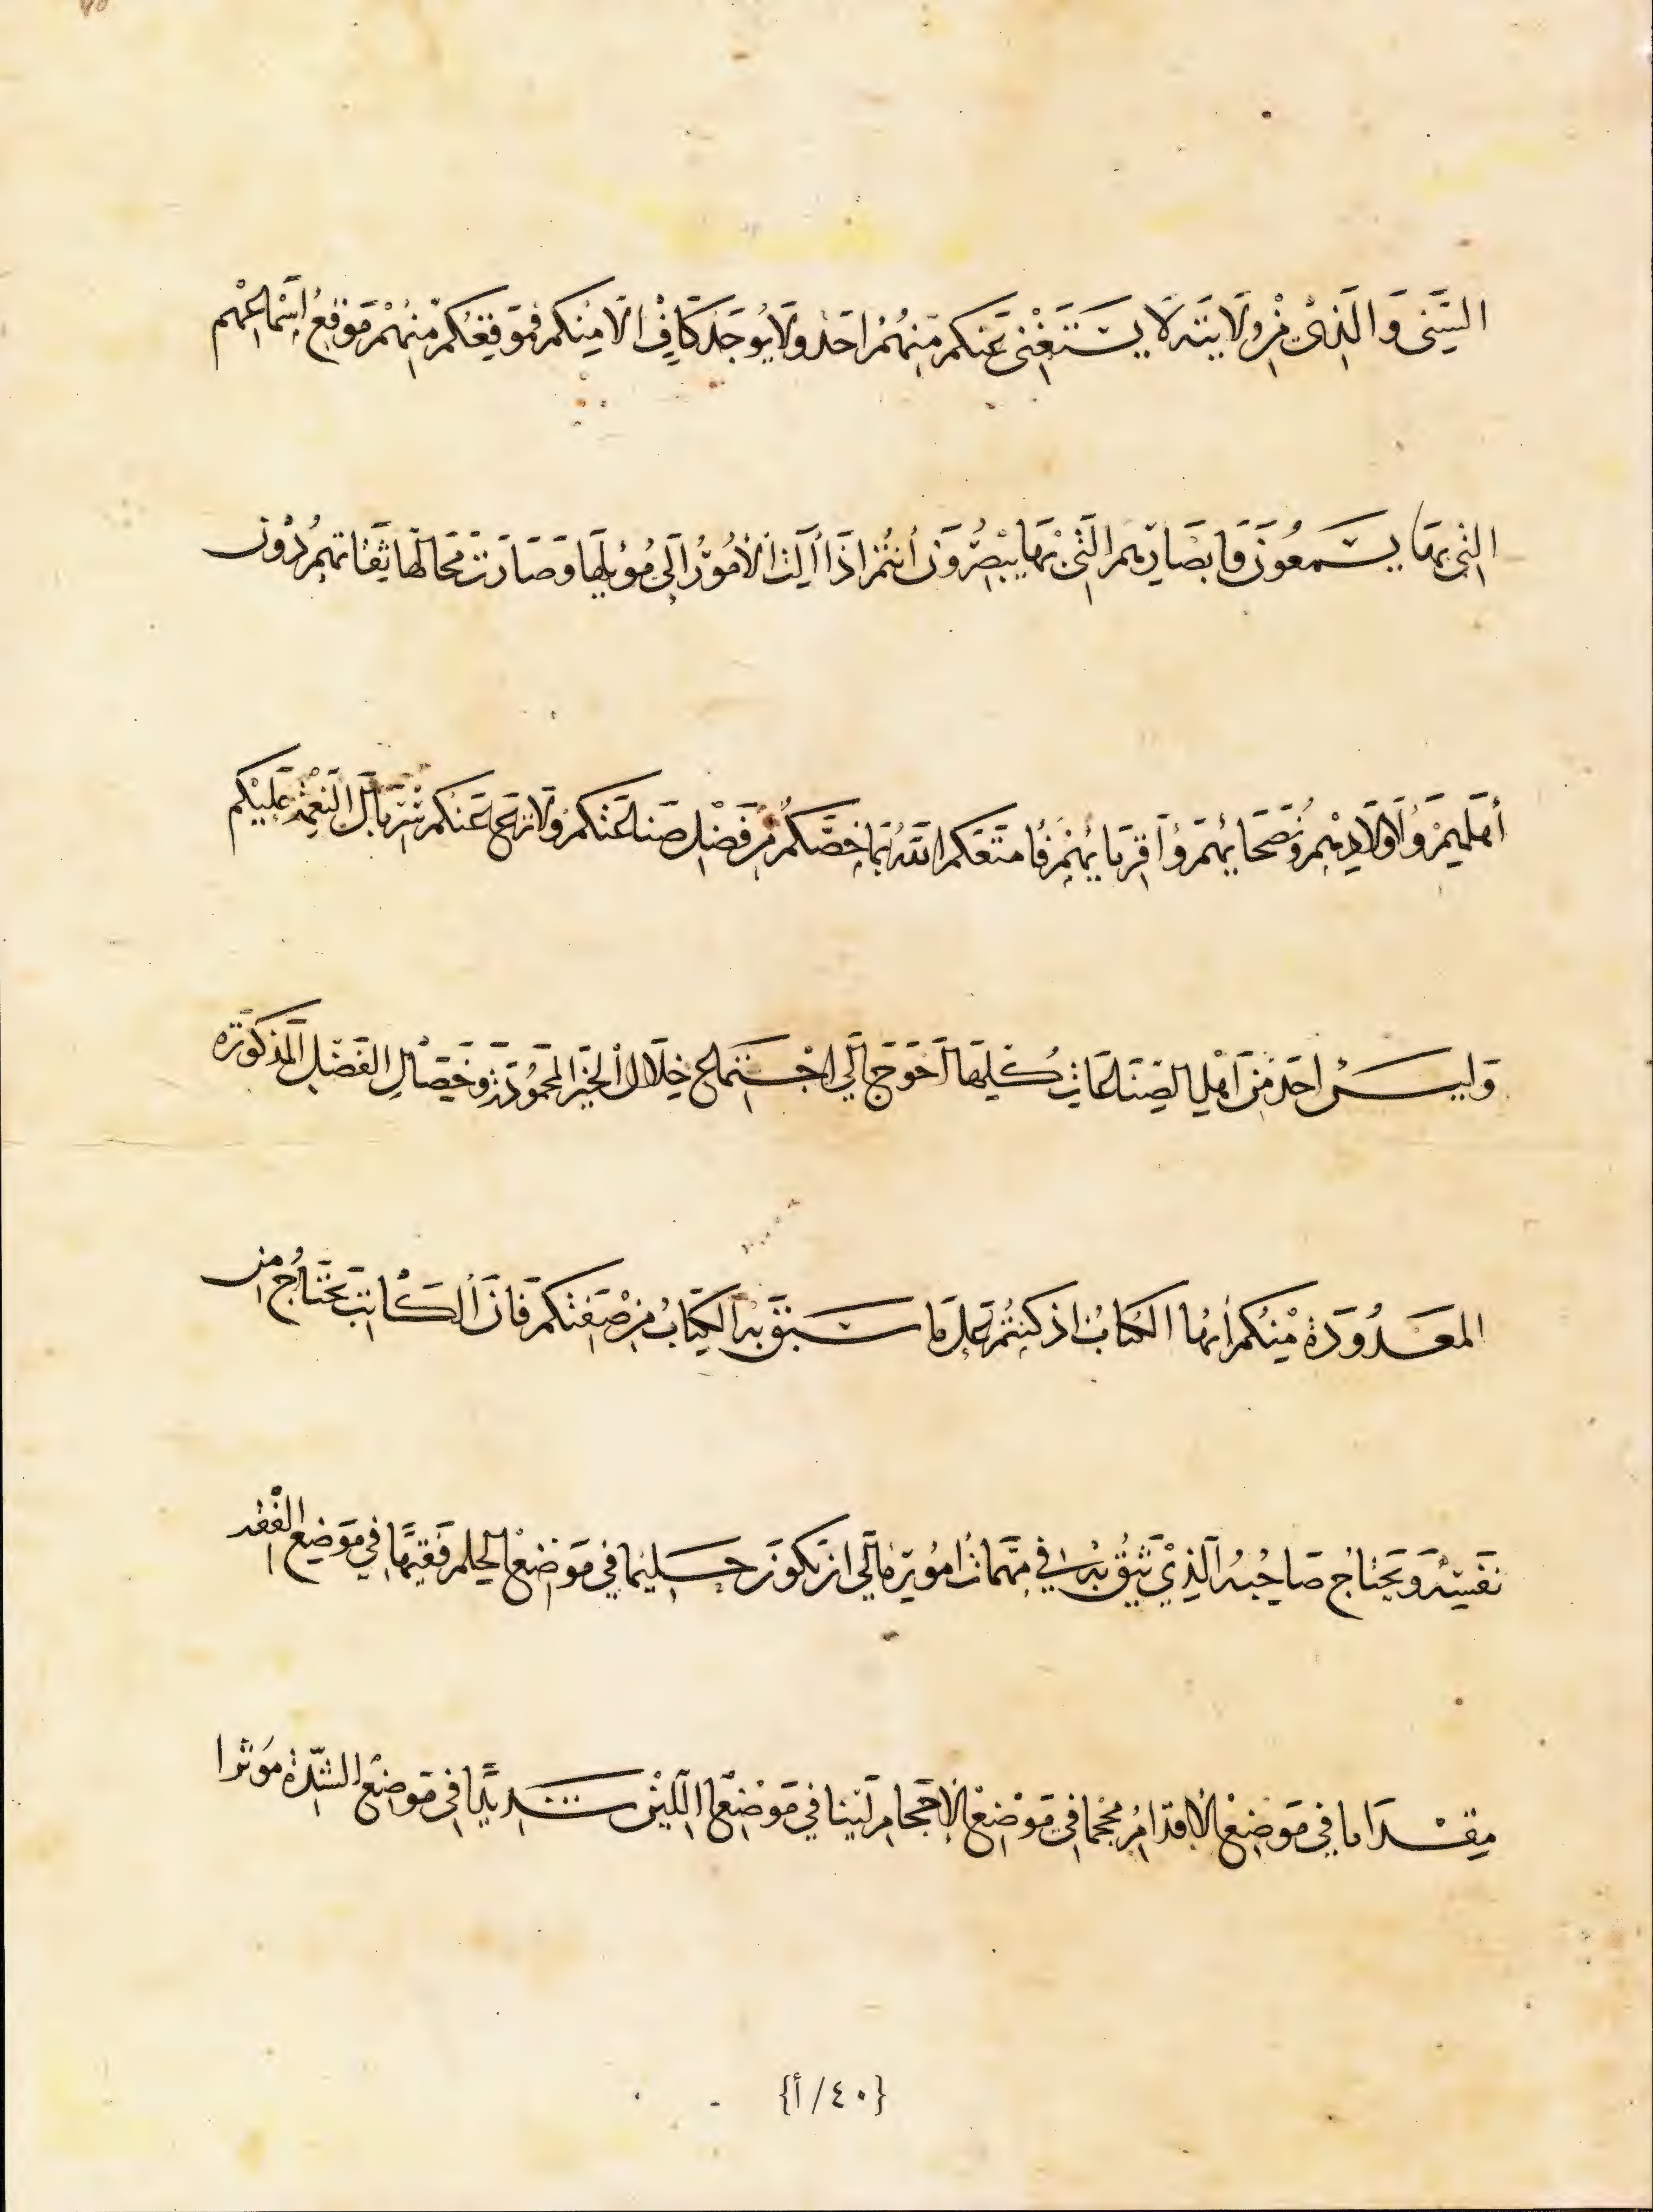 السني والذي من ولايته لا يستغني عنكم منهم احد ولا يوجد كاف الا منكم فموقعكم منهم موقع اسماعهم
التي بها يسمعون وابصارهم التي بها يبصرون أنتم اذا آلت الأمور الى موئلها وصارت محالها ثقاتهم دون
أهليهم وأولادهم ونصحائهم وأقربائهم فامتعكم الله بما خصكم من فضل صناعتكم ولا نزع عنكم سربال النعمة عليكم
وليس احد من اهل الصناعات كلها احوج الى اجتماع خلال الخير المحمودة وخصال الفضل المذكورة
المعدودة منكم أيها الكتاب اذ كنتم على ما سبق به الكتاب من صفتكم فان الكاتب يحتاج من
نفسه ويحتاج صاحبه الذي يثق به في مهمات اموره الى ان يكون حليما في موضع الحلم فقيها في موضع الفقه
مقداما في موضع الاقدام محجما في موضع الاحجام لينا في موضع اللين شديدا في موضع الشدة موثرا
{٤٠/أ}